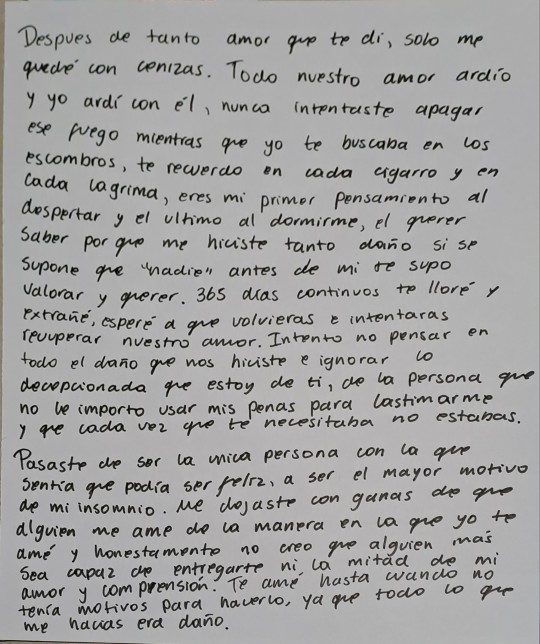 Despues de tanto amor que te di, solo me
quedé con cenizas. Todo nuestro amor ardío
y yo ardí con él, nunca intentaste apagar
ese fuego mientras que yo te buscaba en los
escombros, te recuerdo en cada cigarro y en
cada lagrima, eres mi primer pensamiento al
despertar y el ultimo al dormirme, el querer
saber por que me hiciste tanto daño si se
supone que "nadie" antes de mi te supo
valorar y querer. 365 dias continuos te lloré y
extrañé, esperé a que volvieras e intentaras
recuperar nuestro amor. Intento no pensar en
todo el daño que nos hiciste e ignorar lo
decepcionada que estoy de ti, de la persona que
no le importo usar mis penas para lastimarme
y que cada vez que te necesitaba no estabas.
Pasaste de ser la unica persona con la que
sentia que podía ser feliz, a ser el mayor motivo
de mi insomnio. Me dejaste con ganas de que
alguien me ame de la manera en la que yo te
amé y honestamente no creo que alguien más
sea capaz de entregarte ni la mitad de mi
amor y comprensión. Te amé hasta cuando no
tenía motivos para hacerlo, ya que todo lo que
me hacias era daño.